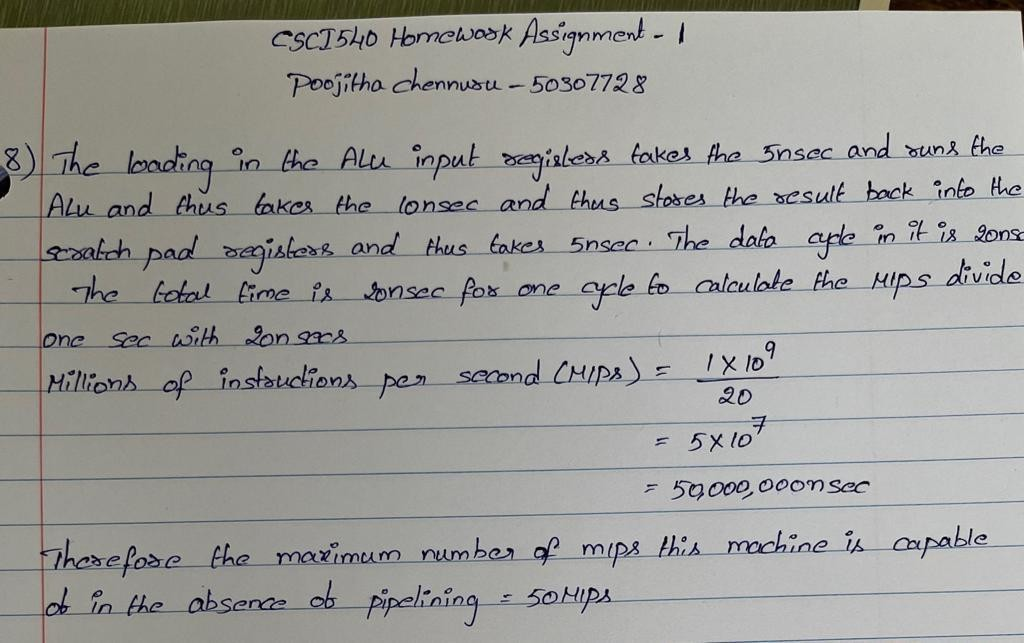 CSCI540 Homework Assignment - 1
Poojitha chennuru - 50307728
8) The loading in the ALU input registers takes the 5nsec and runs the
ALU and thus takes the 10nsec and thus stores the result back into the
scratch pad registers and thus takes 5nsec. The data cycle in it is 20nsc
The total time is 20nsec for one cycle to calculate the MIPS divide
one sec with 20n secs
Millions of instructions per second (MIPS) = 1 X 10^9
20
= 5X10^7
= 50,000,000nsec
Therefore the maximum number of mips this machine is capable
of in the absence of pipelining = 50MIPS